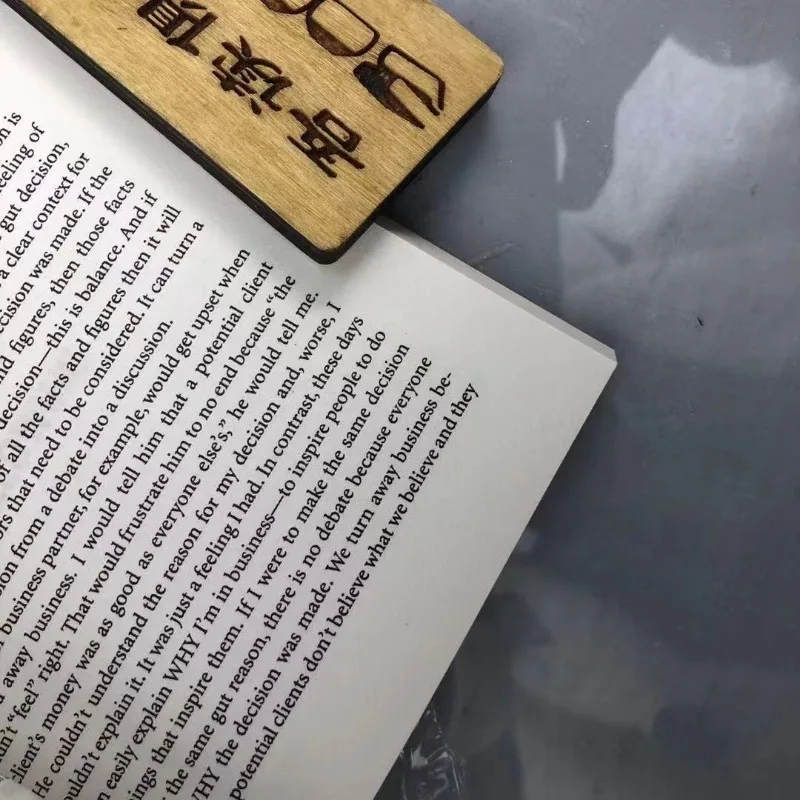 香读俱
BOO
on is
feeling of
gut decision,
a clear context for
decision was made. If the
and figures, then those facts
decision—this is balance. And if
of all the facts and figures then it will
ors that need to be considered. It can turn a
ion from a debate into a discussion.
business partner, for example, would get upset when
away business. I would tell him that a potential client
n't “feel” right. That would frustrate him to no end because “the
client's money was as good as everyone else's,” he would tell me.
He couldn't understand the reason for my decision and, worse, I
ouldn't explain it. It was just a feeling I had. In contrast, these days
n easily explain WHY I'm in business—to inspire people to do
ings that inspire them. If I were to make the same decision
the same gut reason, there is no debate because everyone
WHY the decision was made. We turn away business be-
potential clients don't believe what we believe and they